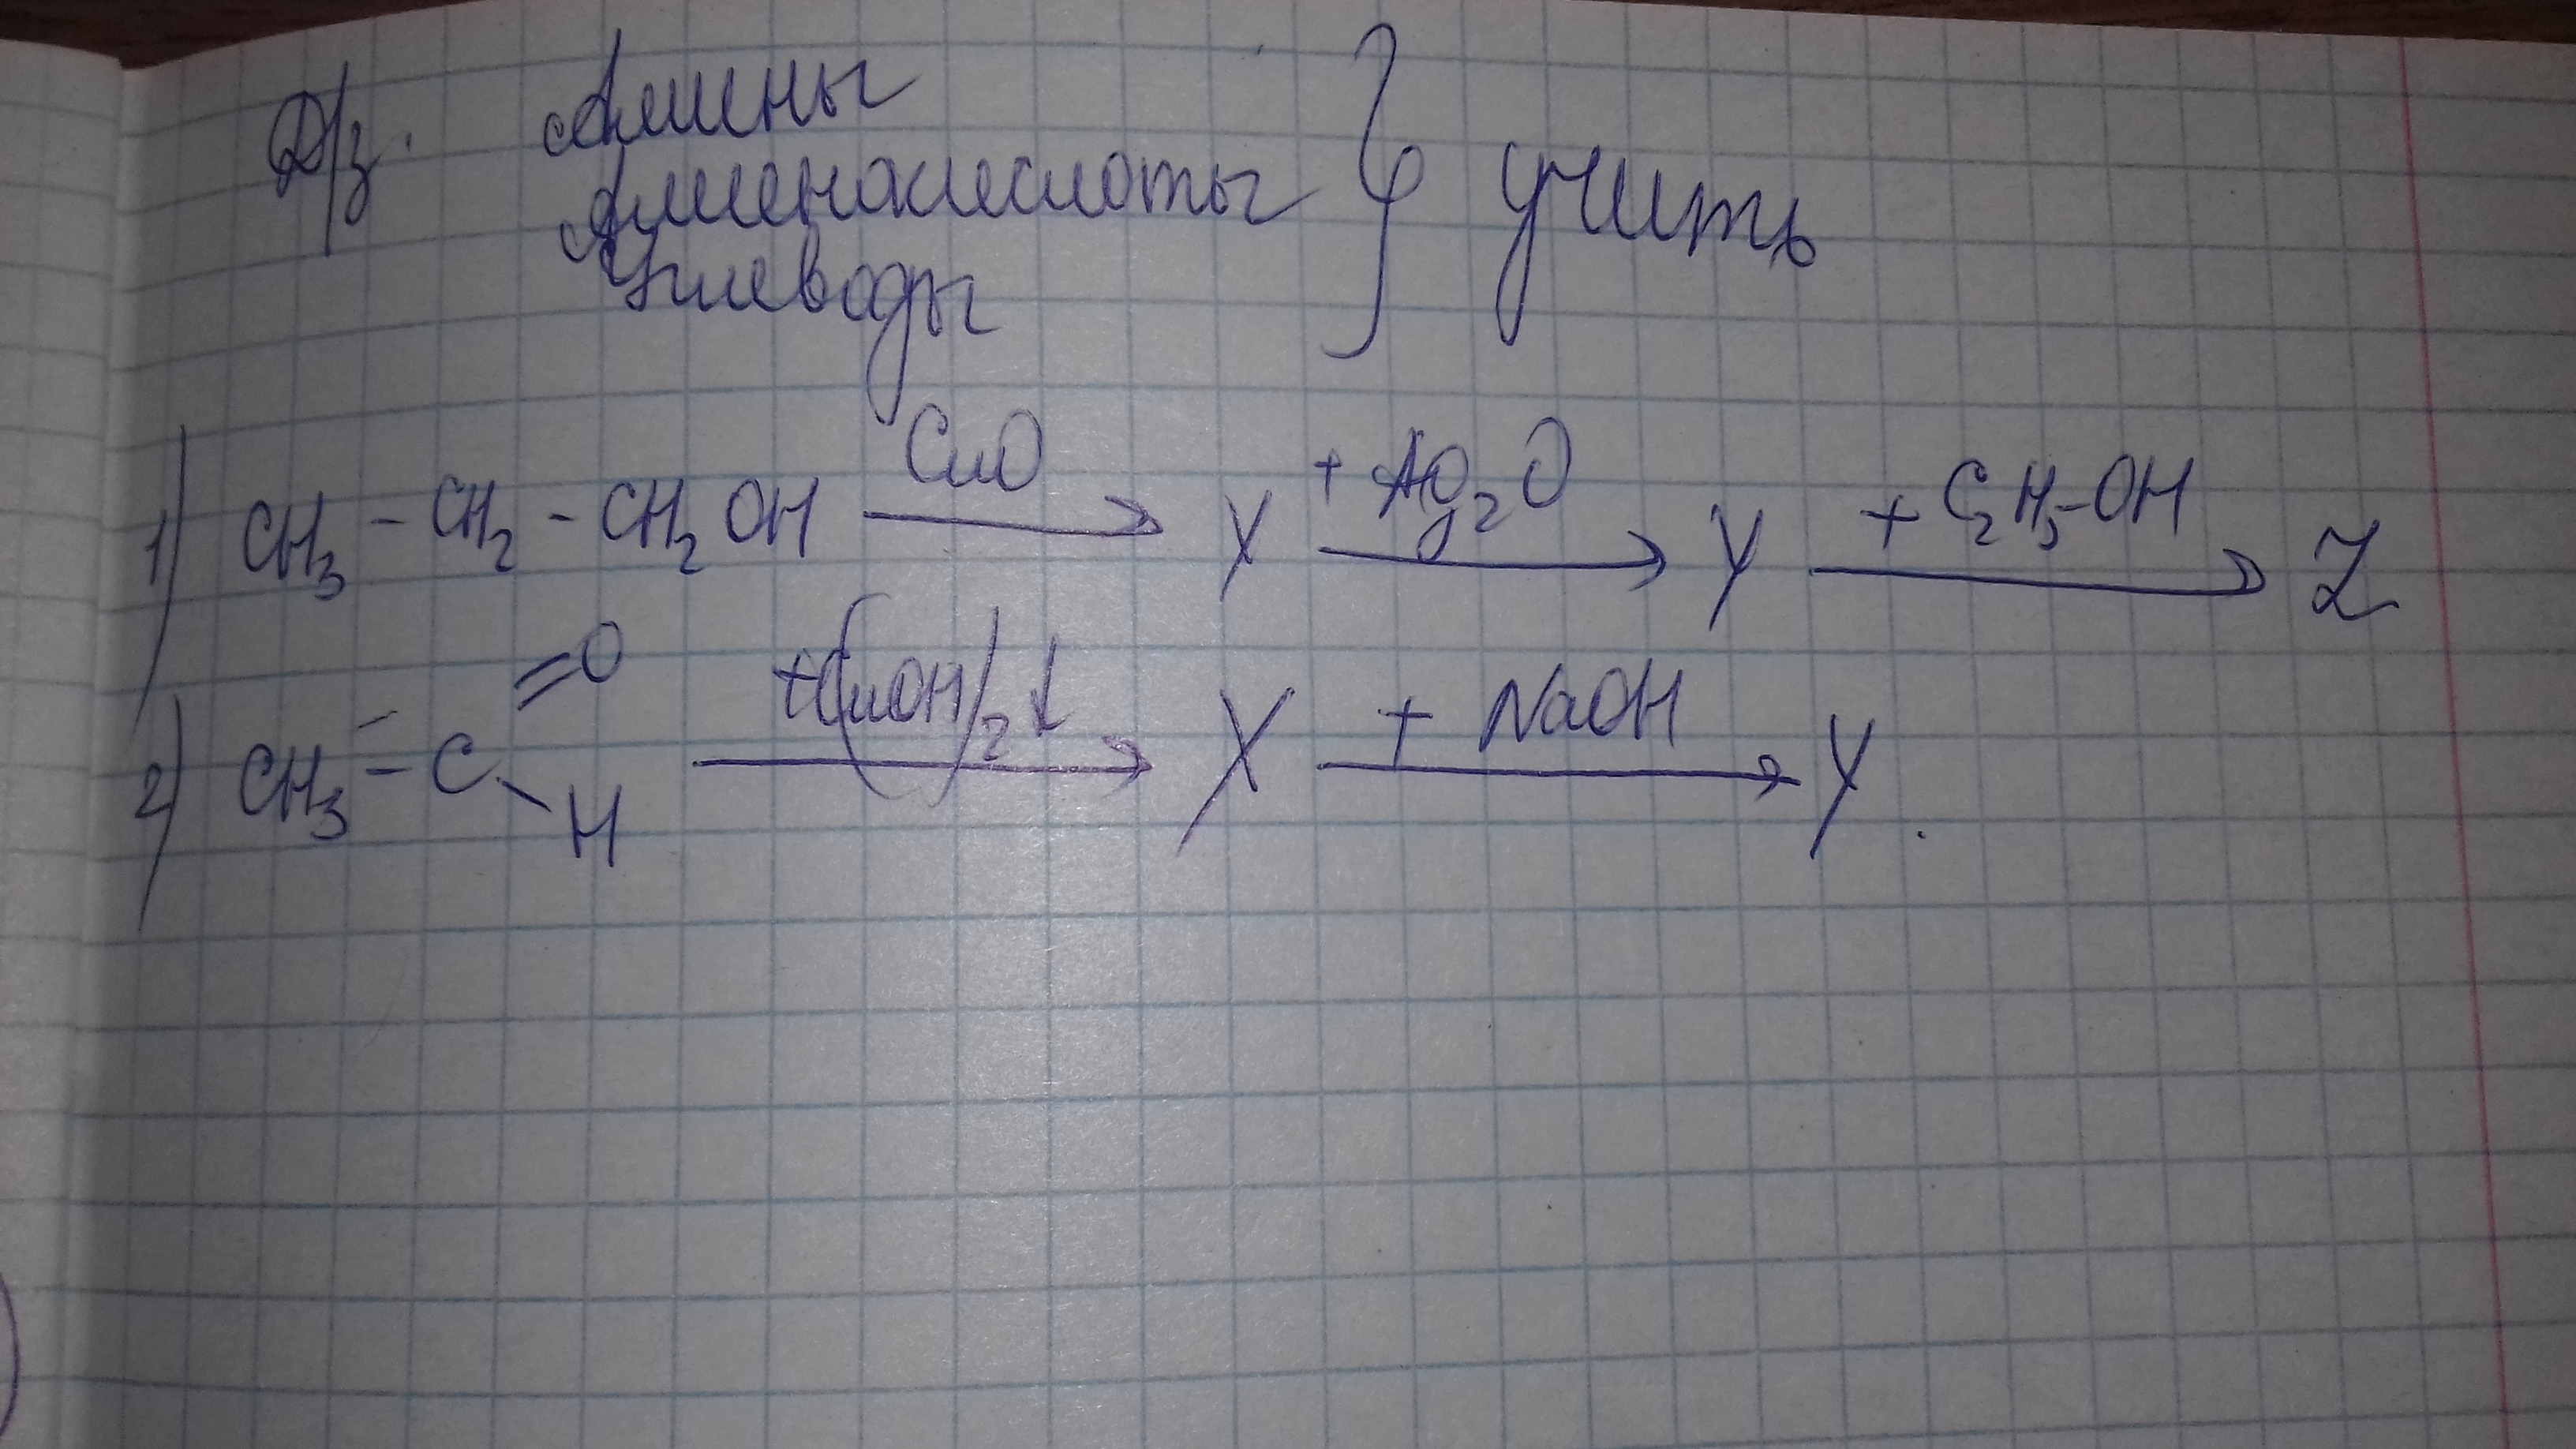 Д/з. Амины
Аминокислоты } учить
Углеводы
1) CH₃ - CH₂ - CH₂OH CuO → X + Ag₂O → Y + C₂H₅-OH → Z
2) CH₃ - C =O \ H + Cu(OH)₂↓ → X + NaOH → Y.